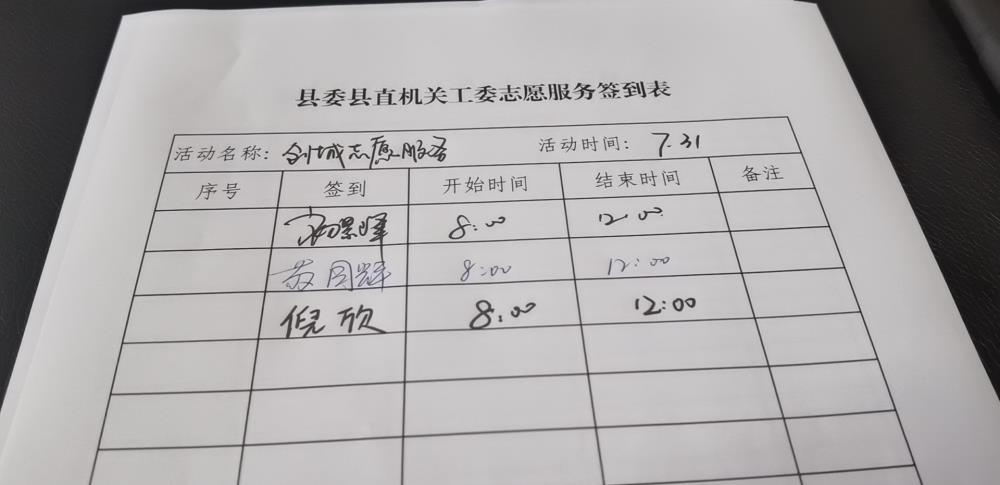 县委县直机关工委志愿服务签到表
活动名称: 创城志愿服务 活动时间: 7.31
序号 签到 开始时间 结束时间 备注
8:00 12:00
8:00 12:00
倪欣 8:00 12:00